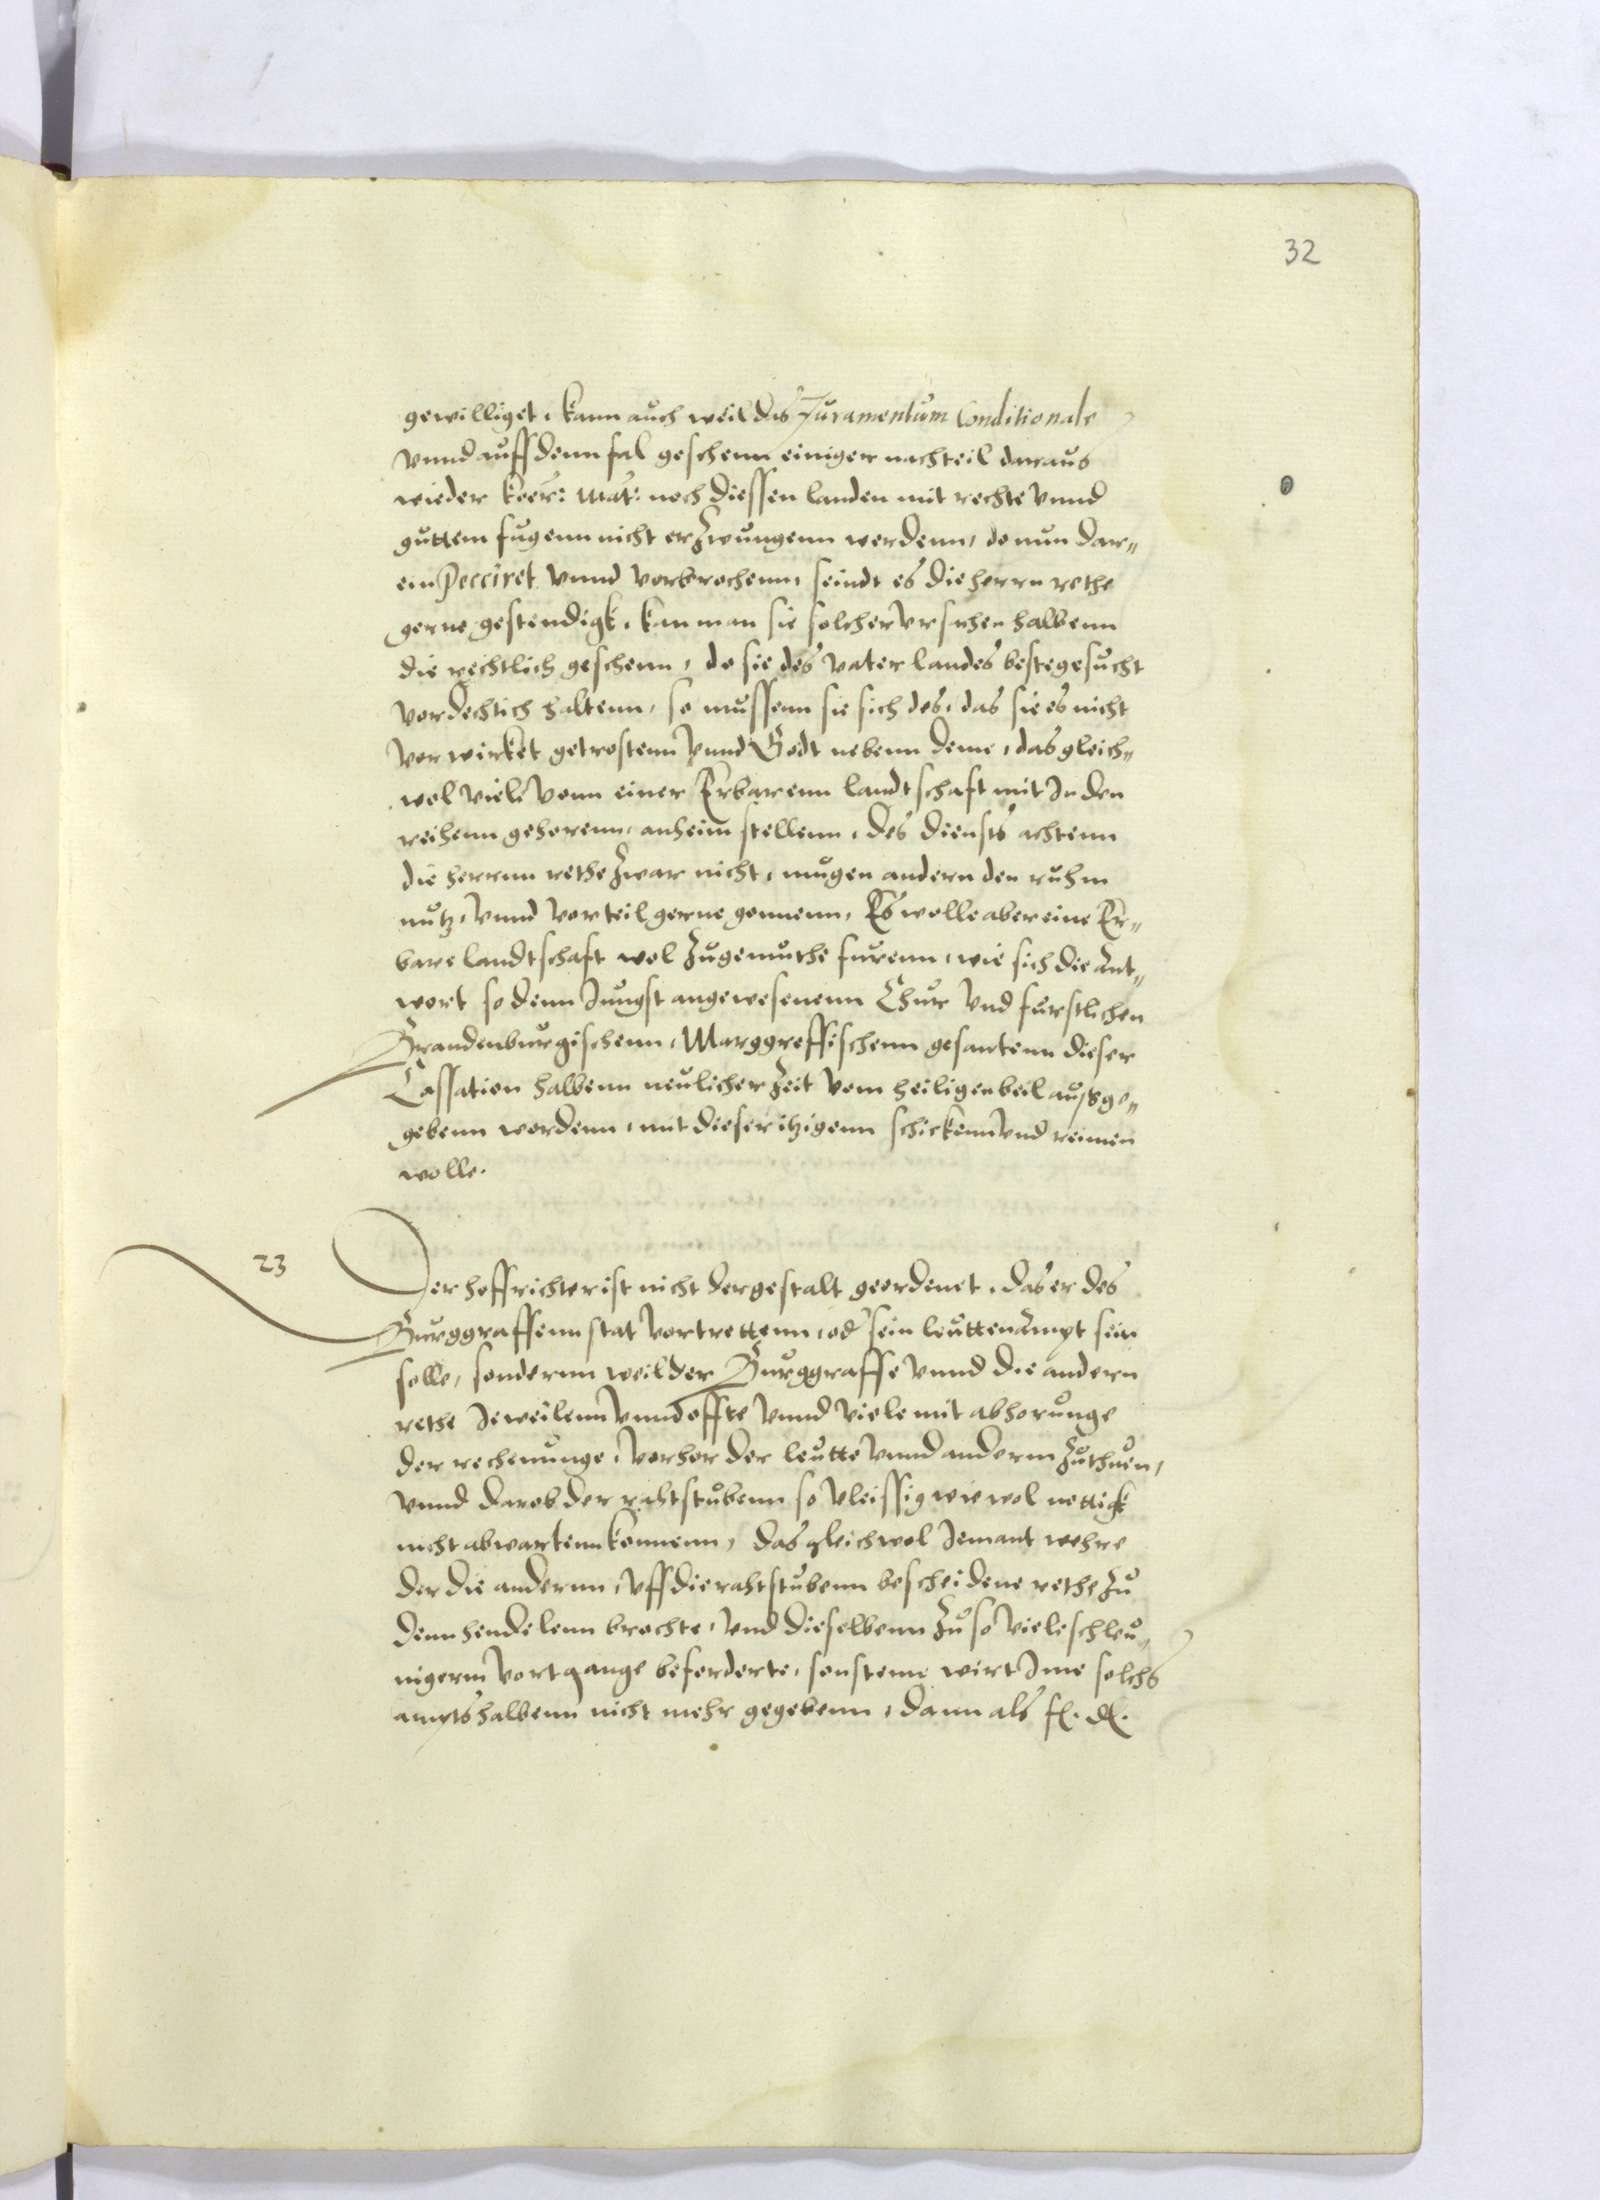 32
gewilliget, kann auch weil das Juramentum Conditionale
vnnd auff denn fal geschenn einiger nachteil daraus
wieder koer: Mat: noch diessen landen mit rechte vnnd
guttem fugenn nicht erzwungenn werdenn, do nun dar„
ein pecciret vnnd vorbrochenn, seindt es die herrn rethe
gerne gestendigk, kan man sie solcher vrsachen halbenn
die rechtlich geschenn, do sie des vaterlandes beste gesucht
vordechtich haltenn, so mussenn sie sich des, das sie es nicht
vorwirket getrostenn vnnd Godt nebenn deme, das gleich„
wol viele vonn einer Erbarenn landtschaft mit In den
reihenn gehorenn, anheim stellenn, des diensts achtenn
die herrnn rethe zwar nicht, mugen andern den ruhm
nutz, vnnd vorteil gerne gonnenn, Es wolle aber eine Er„
bare landtschaft wol zugemuthe furenn, wie sich die Ant„
wort so denn Jungst angewesenenn Chur vnd furstlichen
Brandenburgischenn, Marggreffischenn gesantenn dieser
Cassation halbenn neulicher Zeit vom heiligenbeil aussge„
gebenn wordenn, mit dieser itzigenn schickenn vnd reimen
wolle.
23
Der hoffrichter ist nicht dergestalt geordenet, das er des
Burggraffenn stat vortrettenn, od sein leuttenampt sein
solle, sondernn weil der Burggraffe vnnd die andern
rethe Jeweilenn vnnd offte vnnd viele mit abhorunge
der rechenunge, vorhor der leutte vnnd anderm zuthuen,
vnnd darob der rahtstubenn so vleissig wie wol nottigk
nicht abwartenn konnenn, das gleichwol Jemant wehre
der die andernn, vff die rahtstubenn bescheidene rethe zu
denn hendelenn brachte, vnd dieselbenn zu so viele schleu„
nigerm vortgange beforderte, sonstenn wirt Ime solchs
ampts halbenn nicht mehr gegebenn, dann als fl. dl.